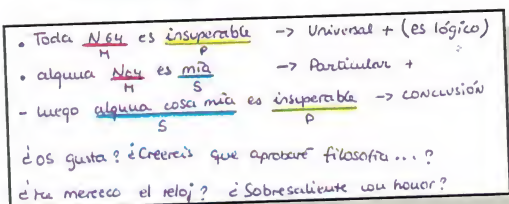 • Toda N64 es insuperable -> Universal + (es lógico)
M P
• alguna N64 es mía -> Particular +
M S
- luego alguna cosa mía es insuperable -> CONCLUSIÓN
S P
¿os gusta? ¿Creereis que aprobaré filosofía...?
¿ me merezco el reloj? ¿Sobresaliente con honor?